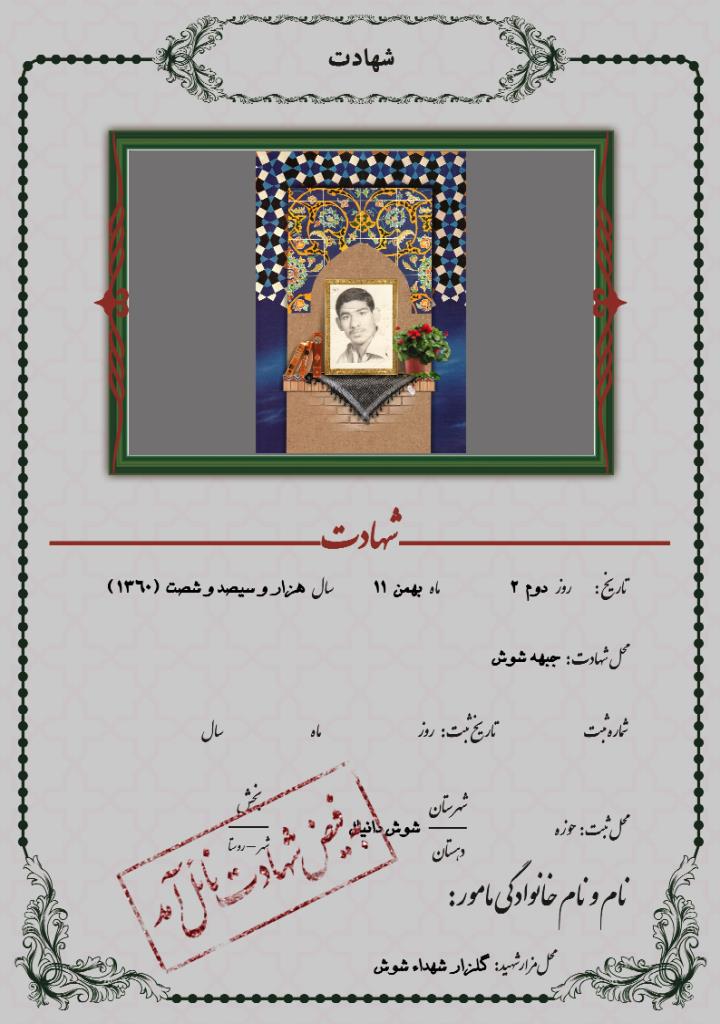 شهادت
شهادت
تاریخ: روز دوم ۲ ماه بهمن ۱۱ سال هزار و سیصد و شصت (۱۳۶۰)
محل شهادت: جبهه شوش
شماره ثبت تاریخ ثبت: روز ماه سال
محل ثبت: حوزه شهرستان شوش دانیال بخش
دهستان شهر-روستا
به فیض شهادت نائل آمد
نام و نام خانوادگی مامور:
محل مزار شهید: گلزار شهداء شوش